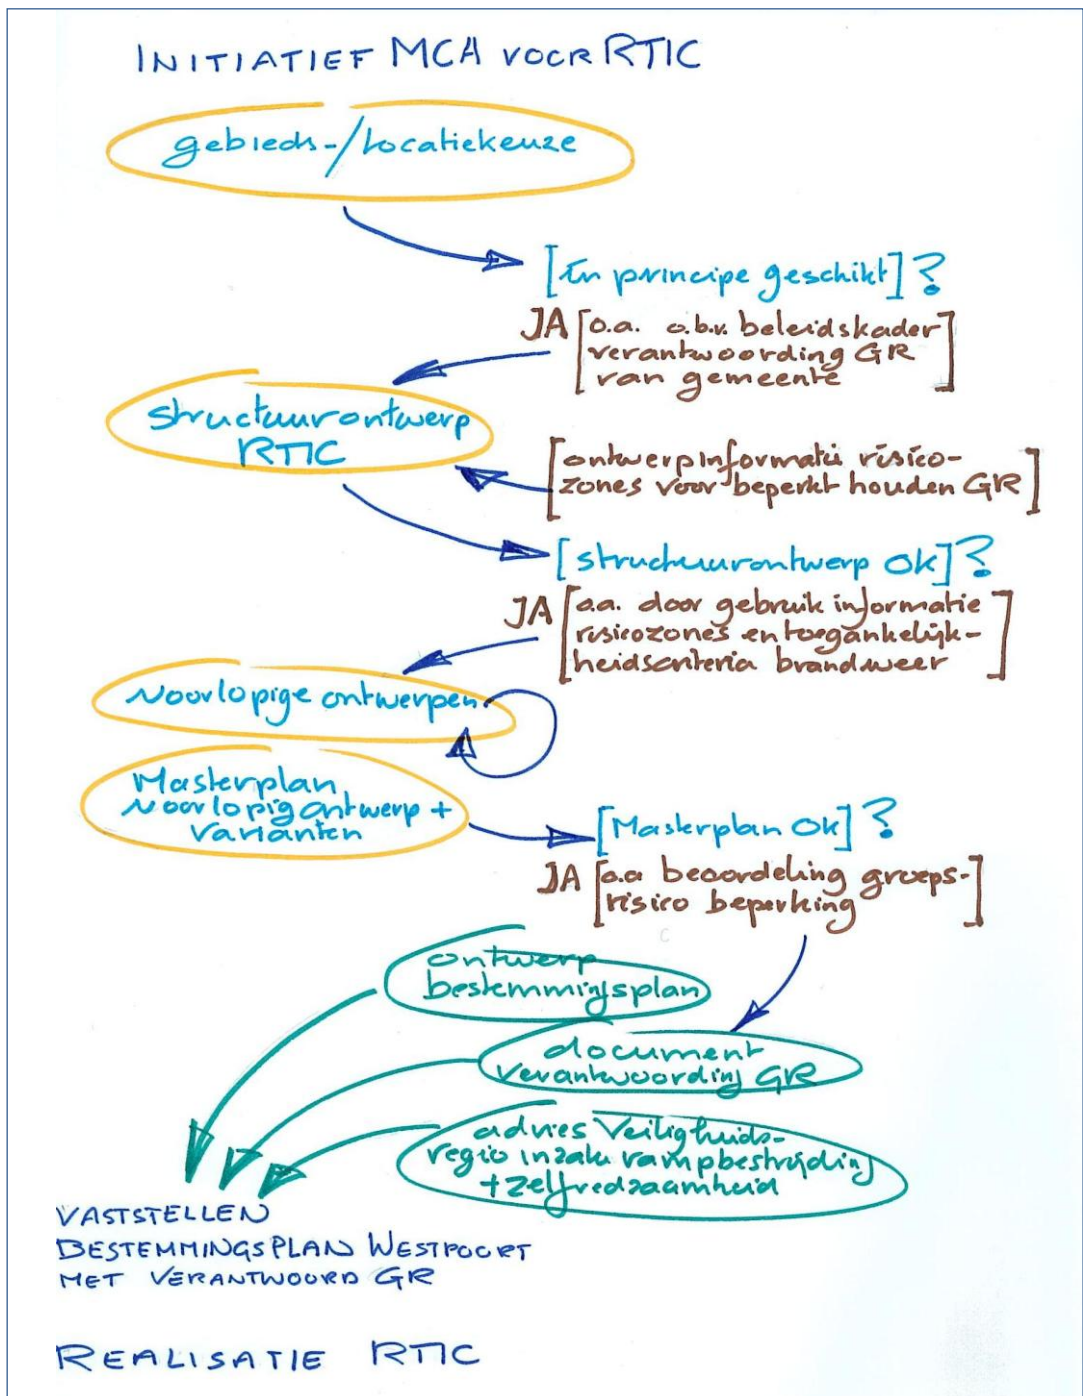 INITIATIEF MCA VOOR RTIC
gebieds-/locatiekeuze
[In principe geschikt]?
JA [o.a. o.b.v. beleidskader
verantwoording GR
van gemeente]
structuurontwerp
RTIC
[ontwerpinformatie risico-
zones voor beperkt houden GR]
[structuurontwerp OK]?
JA [o.a. door gebruik informatie
risicozones en toegankelijk-
heidscriteria brandweer]
Voorlopige ontwerpen
Masterplan
Voorlopig ontwerp +
varianten
[Masterplan OK]?
JA [o.a beoordeling groeps-
risico beperking]
ontwerp
bestemmingsplan
document
verantwoording GR
advies Veiligheids-
regio inzake rampbestrijding
+ zelfredzaamheid
VASTSTELLEN
BESTEMMINGSPLAN WESTPOORT
MET VERANTWOORD GR
REALISATIE RTIC